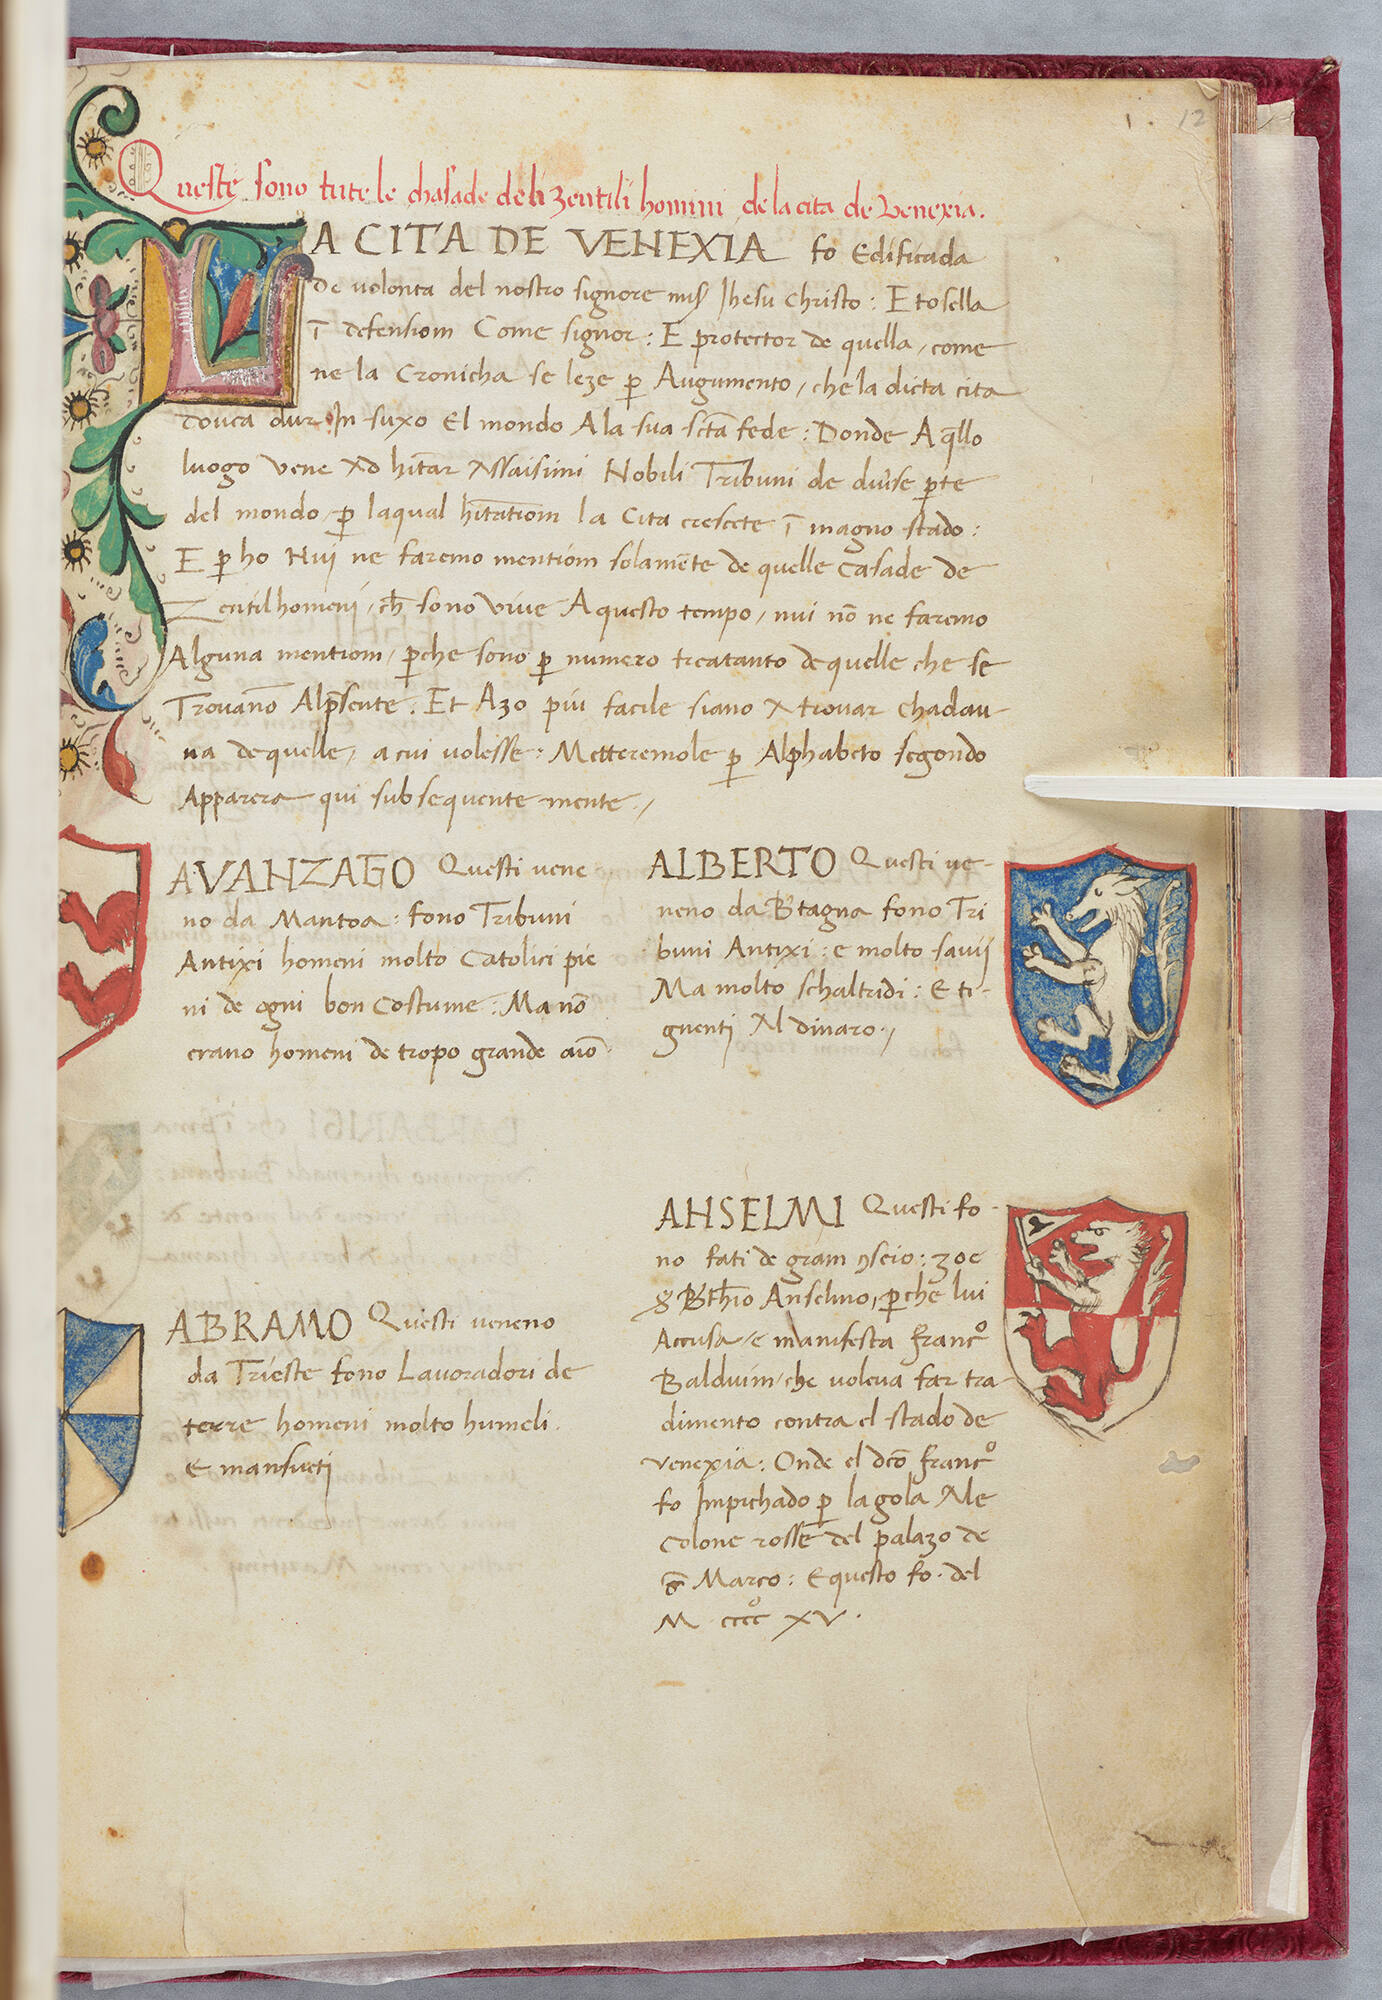 1 . 12
Queste sono tute le chasade deli Zentili homini de la cita de Venexia.
LA CITA DE VENEXIA fo Edificada
De volonta del nostro signore mis̃ Jhesu Christo : E tosella
ĩ defensiom Come signor : E protector de quella / come
ne la Cronicha se leze ꝑ Augumento / che la dicta cita
douea dur In suxo El mondo A la sua sc̃ta fede : Donde A q̃llo
luogo vene Ad hit̃ar Assaisimi Nobili Tribuni de diũse ꝑte
del mondo / ꝑ laqual hit̃atiom la Cita crescete ĩ magno stado :
E ꝑ ho Nuj ne faremo mentiom solamẽte de quelle casade de
Zentilhomeni / ch̃ sono vive A questo tempo / nui nõ ne faremo
Alguna mentiom / ꝑche sono ꝑ numero treatanto de quelle che se
Trovanõ Alp̃sente . Et Azo piu facile siano A trovar chadau-
na de quelle / a cui volesse : Metteremole ꝑ Alphabeto segondo
Apparera qui subsequente mente . /
AVANZAGO Questi vene
no da Mantoa : fono Tribuni
Antixi homeni molto Catolici pie
ni de ogni bon Costume : Ma nõ
erano homeni de tropo grande aĩo .
ABRAMO Questi veneno
da Trieste fono Lavoradori de
terre homeni molto humeli .
E mansuetj
ALBERTO Questi ve-
neno da B̃tagna fono Tri
buni Antixi : e molto savij
Ma molto schaltridi : E ti-
gnentj Al dinaro . /
ANSELMI Questi fo-
no fati de gram ꝯseio : zoe
Bth̃io Anselmo / ꝑche lui
Accusa / e manifesta franc͛o
Balduim / che voleva far tra-
dimento contra el stado de
venexia : Onde el dc̃o franc͛o
fo Impichado ꝑ la gola A le
Colone rosse del palazo de
s̃ Marco : E questo fo . del
M cccc͛ XV .